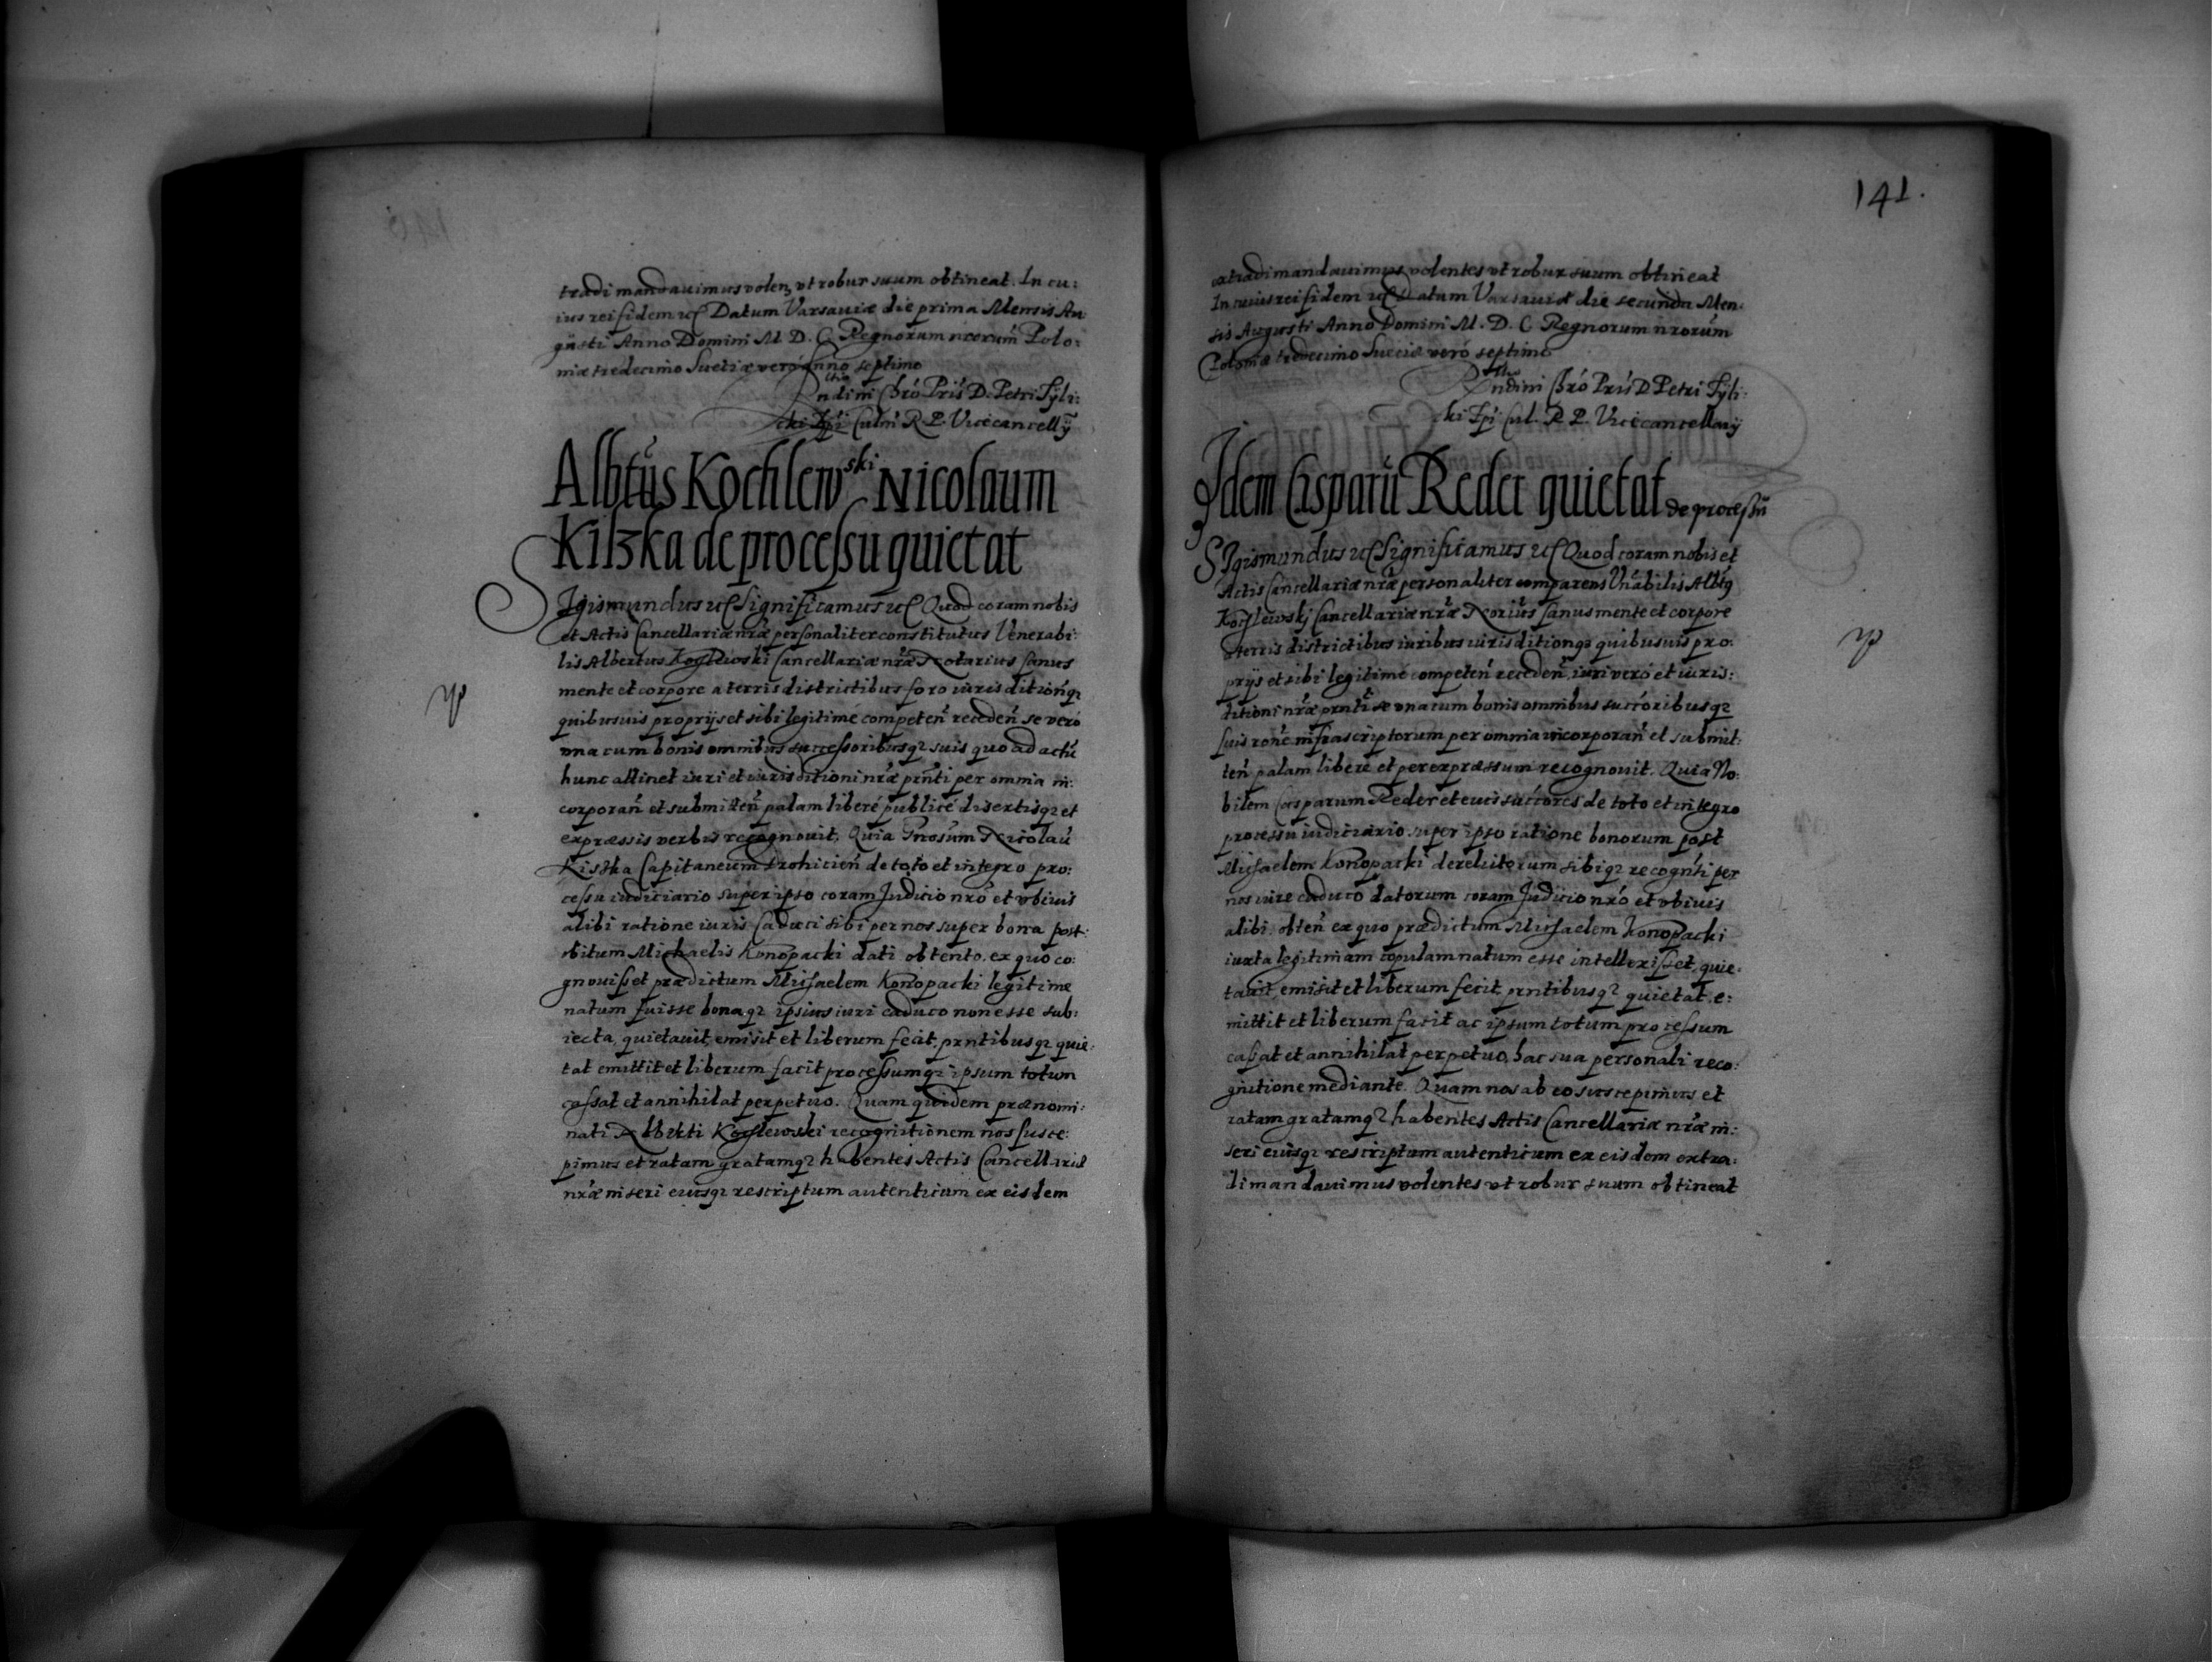 tradi mandauimus volen ut robur suum obtineat. In cu:
ius rei fidem etc Datum Varsauiæ die prima Mensis Au
gusti Anno Domini M D. C. Regnorum nrorum Polo:
niæ tredecimo Suetiæ verò Anno septimo
Rndmi Chrō Pris D. Petri Tyli:
cki Epi Culm R. P. Vicecancellÿ
Albtus Kochlewski Nicolaum
Kilzka de processu quietat
SIgismundus etc Significamus etc Quod coram nobis
et Actis Cancellariæ nræ personaliter constitutus Venerabi:
lis Albertus Kochlewski Cancellariæ nræ Notarius sanus
mente et corpore a terris districtibus foro iurisditionq3
quibusuis proprijs et sibi legitimè competen receden se verò
vna cum bonis omnibus successoribusq3 suis quo ad actū
hunc attinet iuri et iurisditioni nræ prnti per omnia in:
corporan et submitten palam liberè publicè disertisq3 et
expræssis verbis recognouit. Quia Gnosum Nicolaū
Kiszka Capitaneum Drohicien de toto et integro pro:
cessu iudiciario super ipso coram Judicio nrō et vbiuis
alibi ratione iuris Caduci sibi per nos super bona post
obitum Michaelis Konopacki dati obtento, ex quo co:
gnouisset prædictum Misaelem Konopacki legitime
natum fuisse bonaq3 ipsius iuri caduco non esse sub:
iecta, quietauit, emisit et liberum fecit, prntibusq3 quie:
tat emittit et liberum facit processumq3 ipsum totum
cassat et annihilat perpetuo. Quam quidem prænomi:
nati Alberti Kochlewski recognitionem nos susce:
pimus et ratam gratamq3 habentes Actis Cancellariæ
nræ inseri eiusq3 rescriptum autenticum ex eisdem
141.
extradi mandauimus volentes vt robur suum obtineat
In cuius rei fidem etc Datum Varsauiæ die secunda Men:
sis Augusti Anno Domini M. D. C Regnorum nrorum
Poloniæ tredecimo Sueciæ verò septimo
Rndmi Chrō Pris D Petri Tyli:
cki Epi Cul. R P. Vicecancellarij
Idem Casparū Reder quietat de processu
SIgismundus etc Significamus etc Quod coram nobis et
Actis Cancellariæ nræ personaliter comparens Vnabilis Albtq
Kochlewskj Cancellariæ nræ Norius sanus mente et corpore
a terris districtibus iuribus iurisditionq3 quibusuis pro:
prijs et sibi legitimè competen receden, iuri verò et iuris:
ditioni nræ prnti se vna cum bonis omnibus succoribusq3
suis ronè infrascriptorum per omnia incorporan et submit:
ten palam liberè et per expræssum recognouit. Quia No:
bilem Casparum Reder et eius succores de toto et integro
processu iudiciario super ipso ratione bonorum post
Misaelem Konopacki derelictorum sibiq3 recognti per
nos iure caduco datorum coram Judicio nrō et vbiuis
alibi obten ex quo prædictum Misaelem Konopacki
iuxta legitimam copulam natum esse intellexisset, quie:
tauit, emisit et liberum fecit prntibusq3 quietat, e:
mittit et liberum facit ac ipsum totum processum
cassat et annihilat perpetuo, hac sua personali reco:
gnitione mediante. Quam nos ab eo suscepimus et
ratam gratamq3 habentes Actis Cancellariæ nræ in:
seri eiusq3 rescriptum autenticum ex eisdem extra:
di mandauimus volentes vt robur suum obtineat